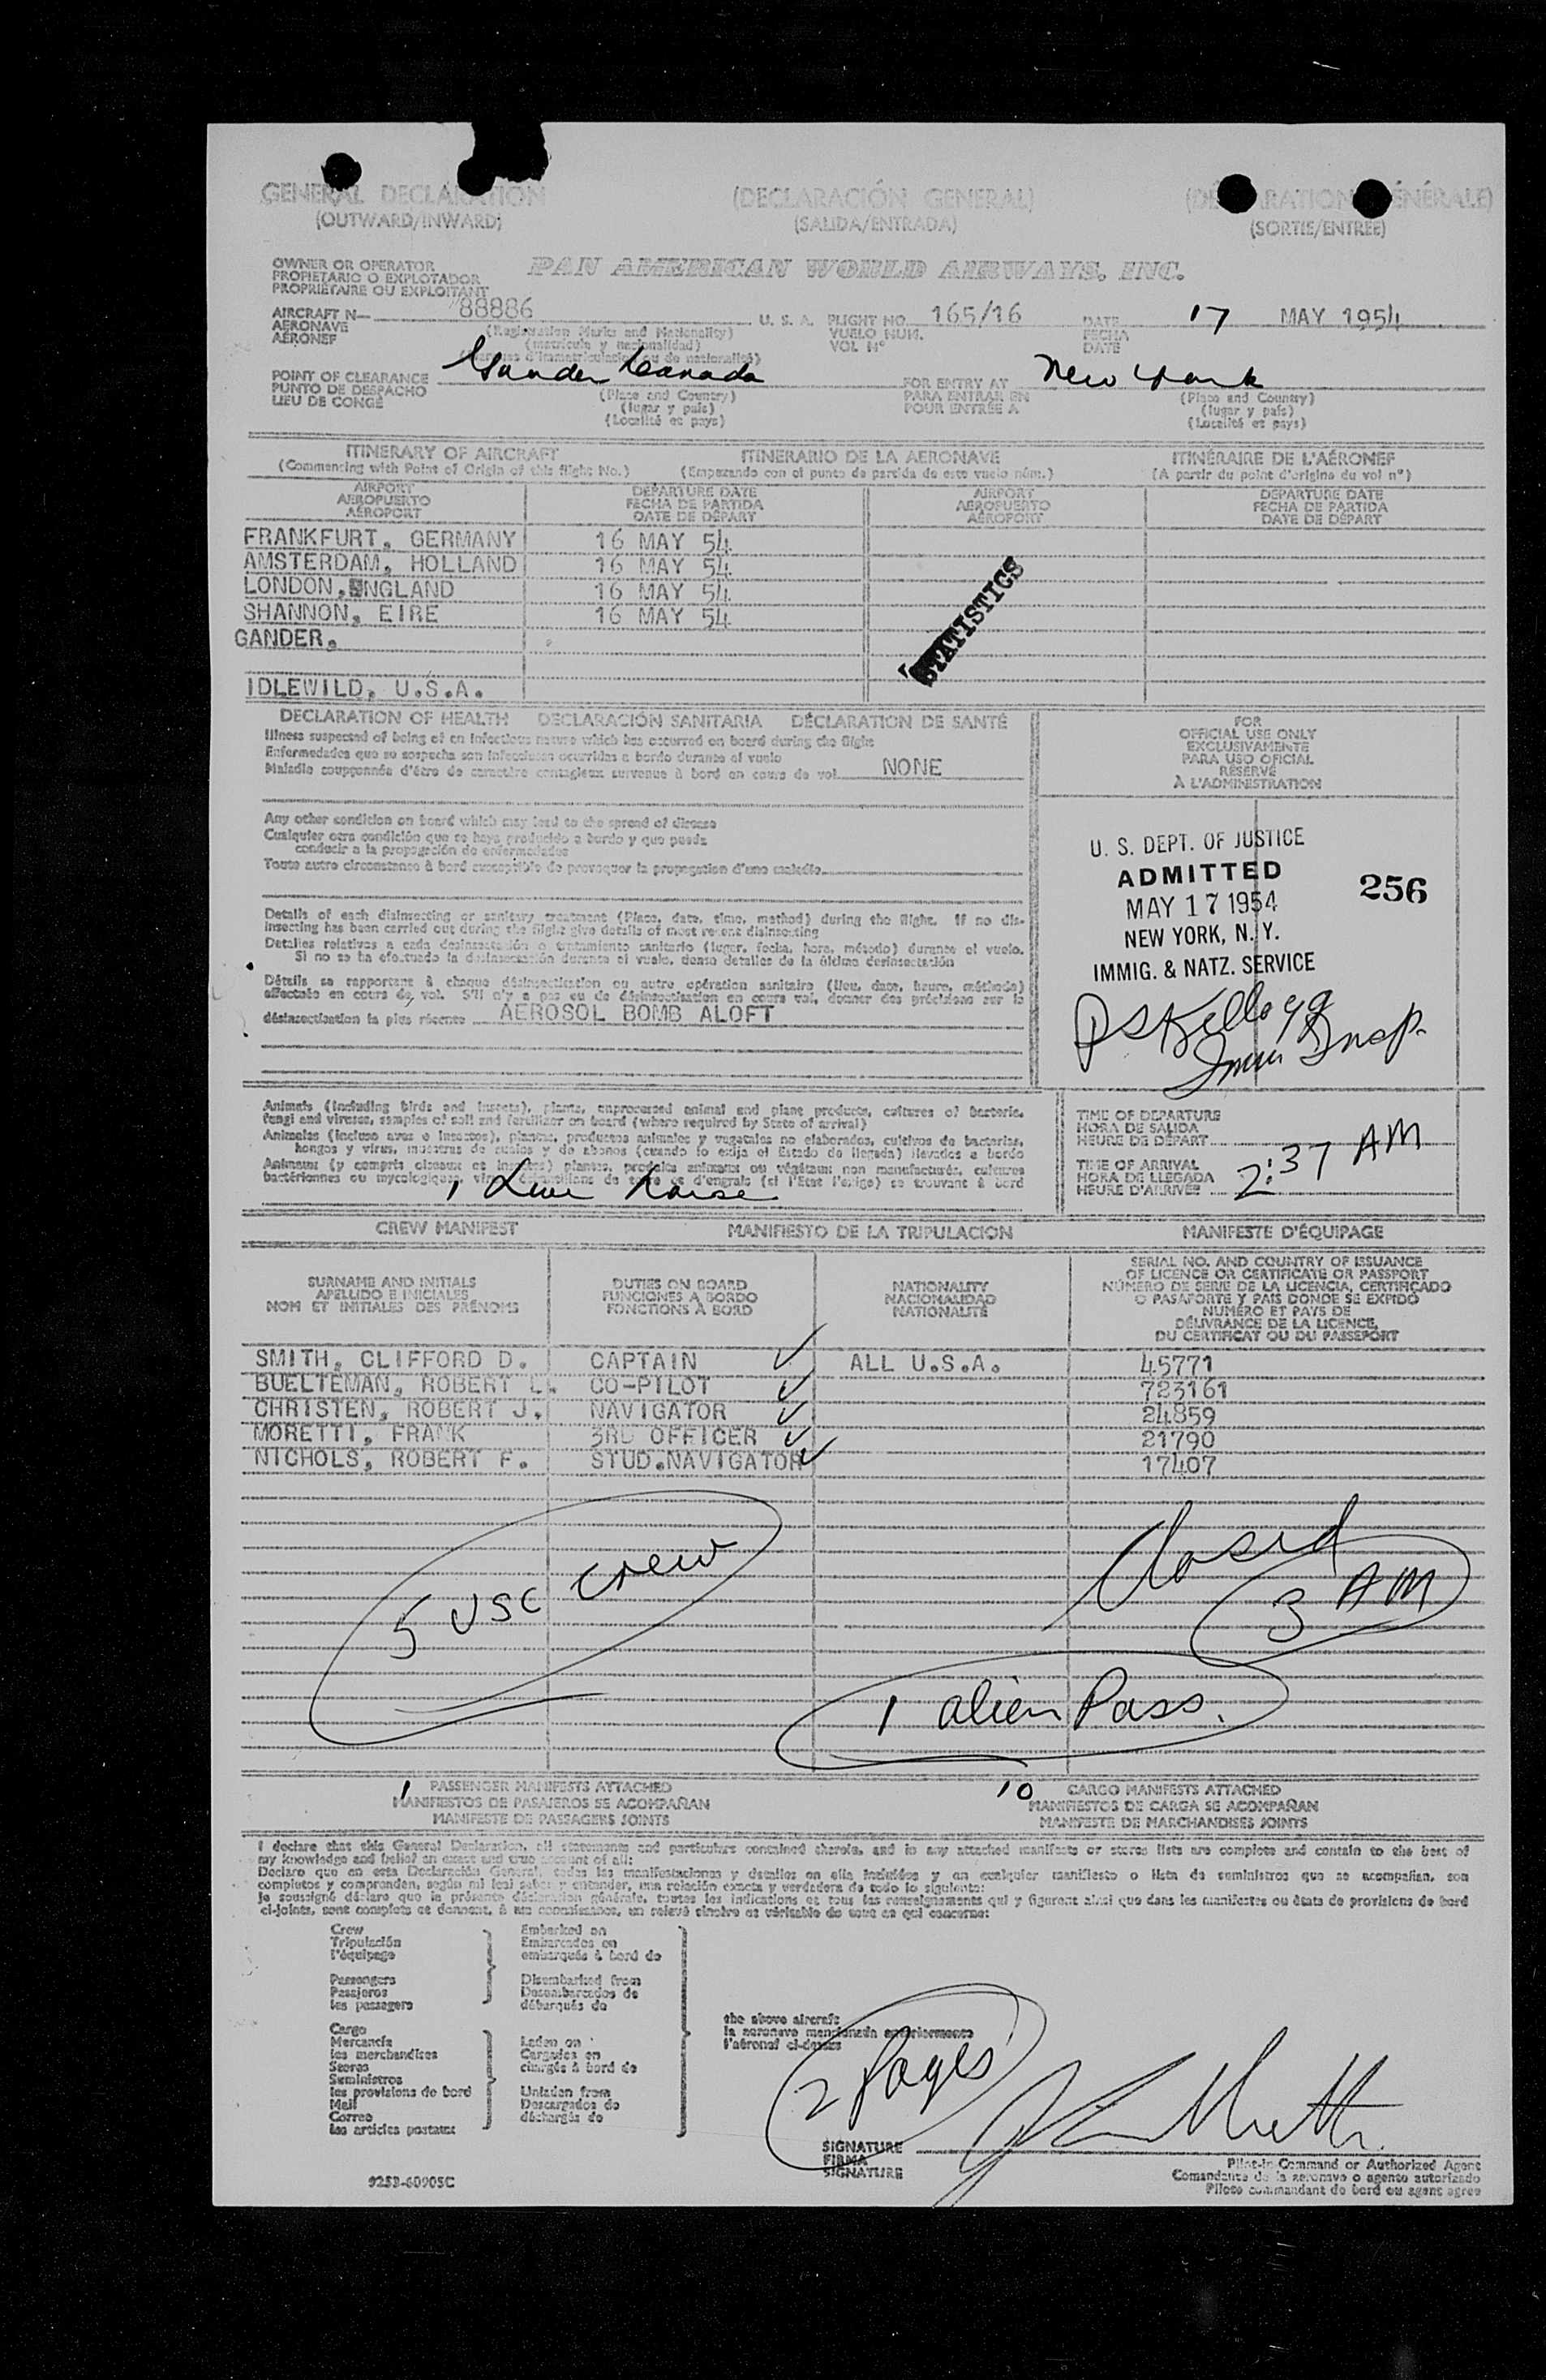 GENERAL DECLARATION (DECLARACIÓN GENERAL) (DÉCLARATION GÉNÉRALE)
(OUTWARD/INWARD) (SALIDA/ENTRADA) (SORTIE/ENTRÉE)
OWNER OR OPERATOR
PROPIETARIO O EXPLOTADOR
PROPRIÉTAIRE OU EXPLOITANT
PAN AMERICAN WORLD AIRWAYS, INC.
AIRCRAFT N— 88886 U. S. A. FLIGHT NO. 165/16 DATE 17 MAY 1954
AERONAVE (Registration Marks and Nationality) VUELO NUM. FECHA
AÉRONEF (matrícula y nacionalidad) VOL Nº DATE
(Marques d'immatriculation ou de nationalité)
POINT OF CLEARANCE Gander Canada FOR ENTRY AT New York
PUNTO DE DESPACHO (Place and Country) PARA ENTRAR EN (Place and Country)
LIEU DE CONGÉ (lugar y país) POUR ENTRÉE A (lugar y país)
(Localité et pays) (Localité et pays)
ITINERARY OF AIRCRAFT ITINERARIO DE LA AERONAVE ITINÉRAIRE DE L'AÉRONEF
(Commencing with Point of Origin of this flight No.) (Empezando con el punto de partida de este vuelo núm.) (A partir du point d'origine du vol nº)
AIRPORT DEPARTURE DATE AIRPORT DEPARTURE DATE
AEROPUERTO FECHA DE PARTIDA AEROPUERTO FECHA DE PARTIDA
AÉROPORT DATE DE DÉPART AÉROPORT DATE DE DÉPART
FRANKFURT, GERMANY 16 MAY 54
AMSTERDAM, HOLLAND 16 MAY 54
LONDON, ENGLAND 16 MAY 54
SHANNON, EIRE 16 MAY 54
GANDER,
IDLEWILD, U.S.A.
STATISTICS
DECLARATION OF HEALTH DECLARACIÓN SANITARIA DÉCLARATION DE SANTÉ
Illness suspected of being of an infectious nature which has occurred on board during the flight
Enfermedades que se sospecha son infecciosas ocurridas a bordo durante el vuelo
Maladie soupçonnée d'être de caractère contagieux survenue à bord en cours de vol NONE
Any other condition on board which may lead to the spread of disease
Cualquier otra condición que se haya producido a bordo y que pueda
conducir a la propagación de enfermedades
Toute autre circonstance à bord susceptible de provoquer la propagation d'une maladie
Details of each disinsecting or sanitary treatment (Place, date, time, method) during the flight. If no dis-
insecting has been carried out during the flight give details of most recent disinsecting
Detalles relativos a cada desinsectación o tratamiento sanitario (lugar, fecha, hora, método) durante el vuelo.
Si no se ha efectuado la desinsectación durante el vuelo, dense detalles de la última desinsectación
Détails se rapportant à chaque désinsectisation ou autre opération sanitaire (lieu, date, heure, méthode)
effectuée en cours de vol. S'il n'y a pas eu de désinsectisation en cours vol, donner des précisions sur la
désinsectisation la plus récente AEROSOL BOMB ALOFT
FOR
OFFICIAL USE ONLY
EXCLUSIVAMENTE
PARA USO OFICIAL
RÉSERVÉ
À L'ADMINISTRATION
U. S. DEPT. OF JUSTICE
ADMITTED
MAY 17 1954
NEW YORK, N. Y.
IMMIG. & NATZ. SERVICE
256
PSKellogg
Imm Insp.
Animals (including birds and insects), plants, unprocessed animal and plant products, cultures of bacteria,
fungi and viruses, samples of soil and fertilizer on board (where required by State of arrival)
Animales (incluso aves e insectos), plantas, productos animales y vegetales no elaborados, cultivos de bacterias,
hongos y virus, muestras de suelos y de abonos (cuando lo exija el Estado de llegada) llevados a bordo
Animaux (y compris oiseaux et insectes) plantes, produits animaux ou végétaux non manufacturés, cultures
bactériennes ou mycologiques, virus, échantillons de terre et d'engrais (si l'Etat l'exige) se trouvant à bord
1 Live horse
TIME OF DEPARTURE
HORA DE SALIDA
HEURE DE DÉPART
TIME OF ARRIVAL
HORA DE LLEGADA
HEURE D'ARRIVÉE 2:37 AM
CREW MANIFEST MANIFIESTO DE LA TRIPULACION MANIFESTE D'ÉQUIPAGE
SURNAME AND INITIALS
APELLIDO E INICIALES
NOM ET INITIALES DES PRÉNOMS
DUTIES ON BOARD
FUNCIONES A BORDO
FONCTIONS À BORD
NATIONALITY
NACIONALIDAD
NATIONALITÉ
SERIAL NO. AND COUNTRY OF ISSUANCE
OF LICENCE OR CERTIFICATE OR PASSPORT
NÚMERO DE SERIE DE LA LICENCIA, CERTIFICADO
O PASAPORTE Y PAIS DONDE SE EXPIDÓ
NUMÉRO ET PAYS DE
DÉLIVRANCE DE LA LICENCE,
DU CERTIFICAT OU DU PASSEPORT
SMITH, CLIFFORD D. CAPTAIN ✓ ALL U.S.A. 45771
BUELTEMAN, ROBERT L. CO-PILOT ✓ 723161
CHRISTEN, ROBERT J. NAVIGATOR ✓ 24859
MORETTI, FRANK 3RD OFFICER ✓ 21790
NICHOLS, ROBERT F. STUD.NAVIGATOR ✓ 17407
5 USC crew
Closed
3 AM
1 alien Pass.
1 PASSENGER MANIFESTS ATTACHED 10 CARGO MANIFESTS ATTACHED
MANIFIESTOS DE PASAJEROS SE ACOMPAÑAN MANIFIESTOS DE CARGA SE ACOMPAÑAN
MANIFESTE DE PASSAGERS JOINTS MANIFESTE DE MARCHANDISES JOINTS
I declare that this General Declaration, all statements and particulars contained therein, and in any attached manifests or stores lists are complete and contain to the best of
my knowledge and belief an exact and true account of all:
Declaro que en esta Declaración General, todas las manifestaciones y detalles en ella incluídos y en cualquier manifiesto o lista de suministros que se acompañan, son
completos y comprenden, según mi leal saber y entender, una relación exacta y verdadera de todo lo siguiente:
Je soussigné déclare que la présente déclaration générale, toutes les indications et tous les renseignements qui y figurent ainsi que dans les manifestes ou états de provisions de bord
ci-joints, sont complets et donnent, à ma connaissance, un relevé sincère et véritable de tout ce qui concerne:
Crew
Tripulación
l'équipage
Passengers
Pasajeros
les passagers
Cargo
Mercancía
les merchandises
Stores
Suministros
les provisions de bord
Mail
Correo
les articles postaux
Embarked on
Embarcados en
embarqués à bord de
Disembarked from
Desembarcados de
débarqués de
Laden on
Cargados en
chargés à bord de
Unladen from
Descargados de
déchargés de
the above aircraft
la aeronave mencionada anteriormente
l'aéronef ci-dessus
2 Pages
SIGNATURE
FIRMA
SIGNATURE
Pilot-in Command or Authorized Agent
Comandante de la aeronave o agente autorizado
Pilote commandant de bord ou agent agree
9253-60905C